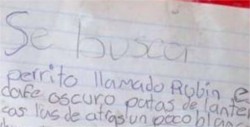 Se busca
perrito llamado Robin e
cafe oscuro patas delante
sas las de atras un poco blanc